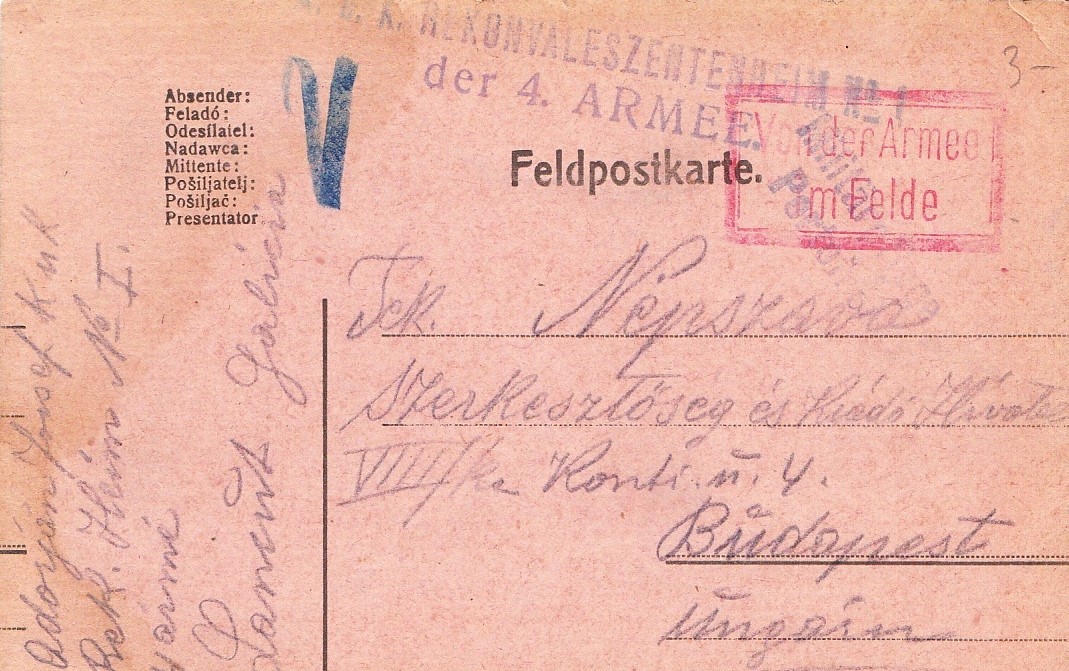 K. REKONVALESZENTENHEIM № 1
der 4. ARMEE.
3-
Absender:
Feladó:
Odesílatel:
Nadawca:
Mittente:
Pošiljatelj:
Pošiljač:
Presentator
V
Feldpostkarte.
Von der Armee
im Felde
Tek. Népszava
Szerkesztőség és Kiadó Hivatal
VIII/ker Konti u. 4.
Budapest
Ungarn
Adorján József KuK
Rek. Heim № I.
Armé
Lancut Galicia